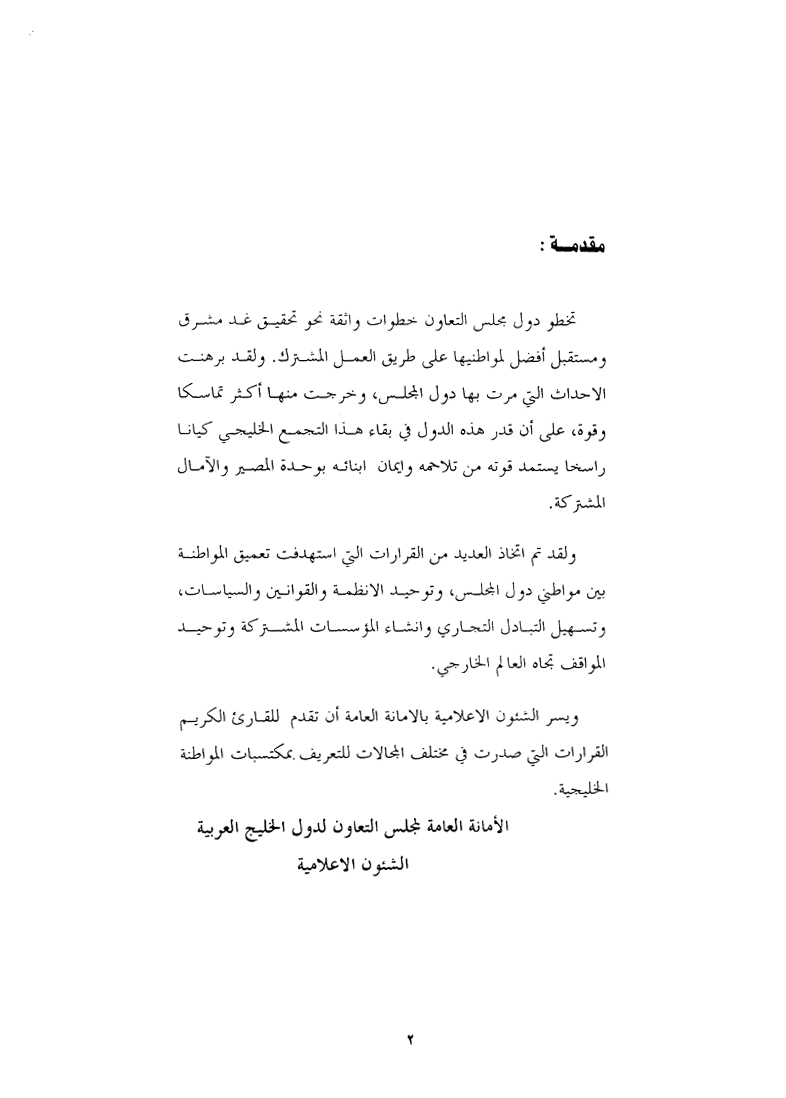 مقدمـــة :
تخطو دول مجلس التعاون خطوات واثقة نحو تحقيـق غـد مشـرق
ومستقبل أفضل لمواطنيها على طريق العمـل المشـترك. ولقـد برهنـت
الاحداث التي مرت بها دول المجلـس، وخرجـت منهـا أكـثر تماسـكا
وقوة، على أن قدر هذه الدول في بقاء هـذا التجمـع الخليجـي كيانـا
راسخا يستمد قوته من تلاحمه وايمان ابنائـه بوحـدة المصـير والآمـال
المشتركة.
ولقد تم اتخاذ العديد من القرارات التي استهدفت تعميق المواطنـة
بين مواطني دول المجلـس، وتوحيـد الانظمـة والقوانـين والسياسـات،
وتسـهيل التبـادل التجـاري وانشـاء المؤسسـات المشـتركة وتوحيـد
المواقف تجاه العالم الخارجي.
ويسر الشئون الاعلامية بالامانة العامة أن تقدم للقـارئ الكريـم
القرارات التي صدرت في مختلف المجالات للتعريف بمكتسبات المواطنة
الخليجية.
الأمانة العامة لمجلس التعاون لدول الخليج العربية
الشئون الاعلامية
٢